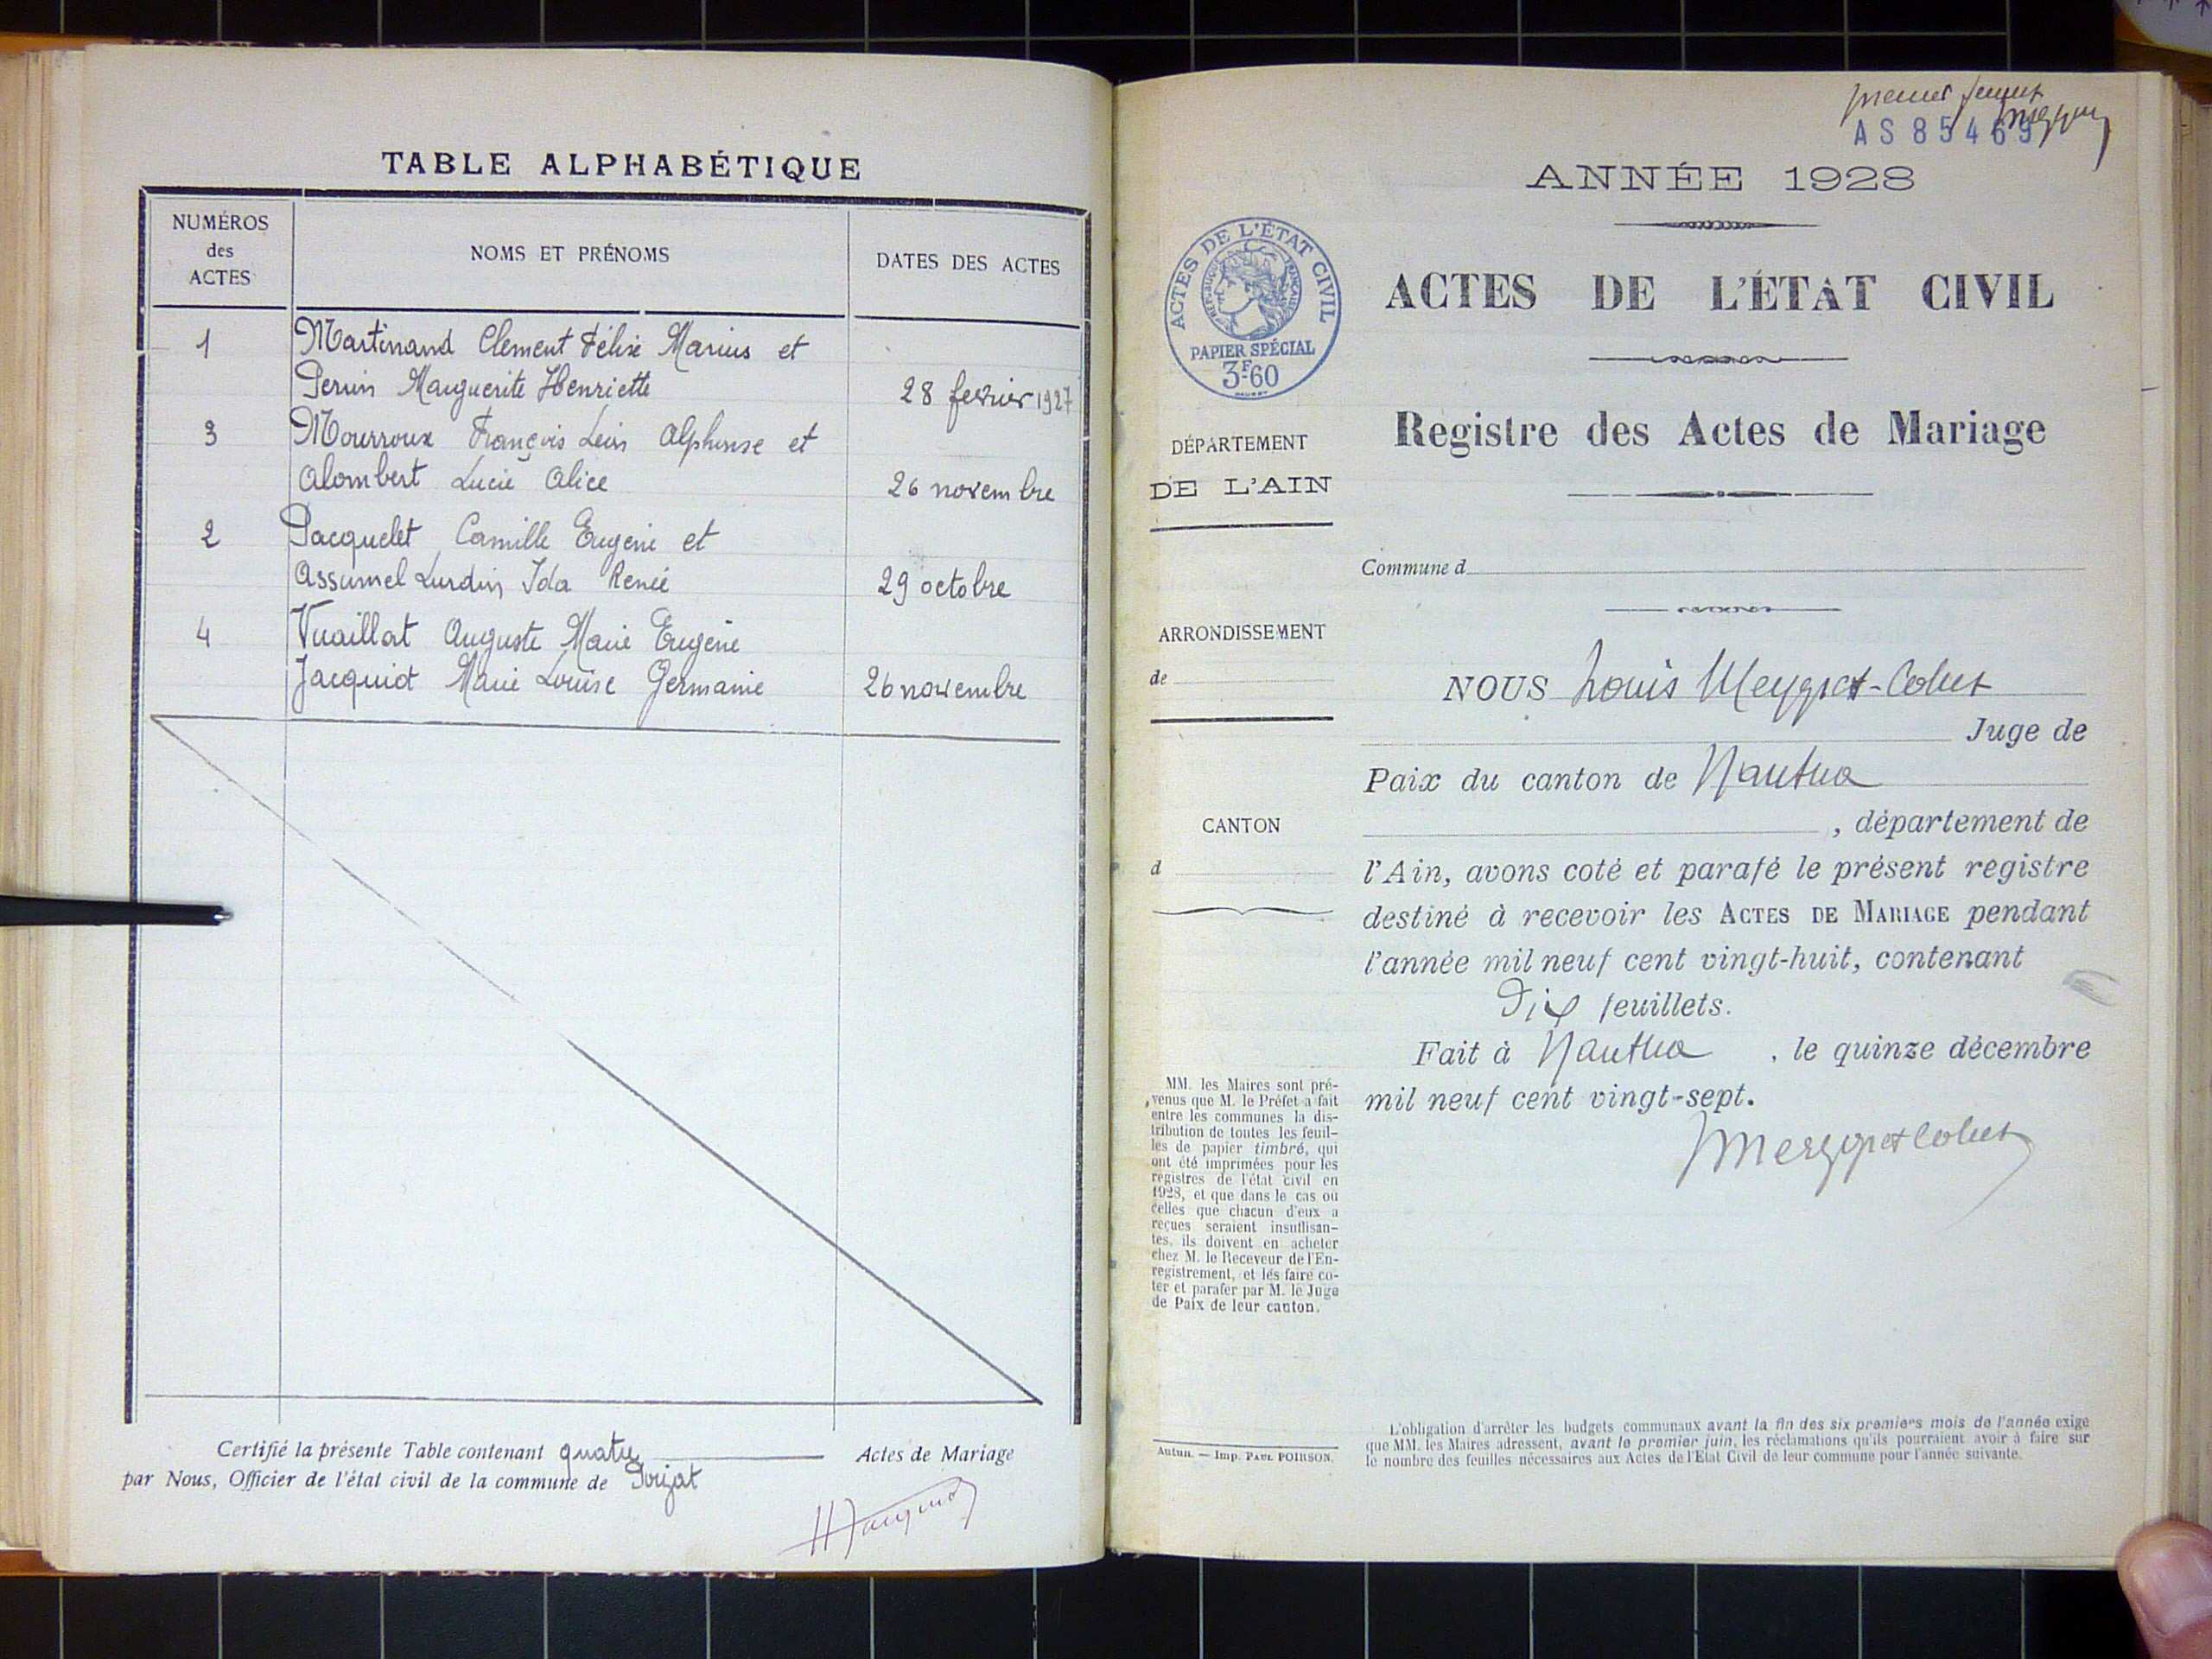 TABLE ALPHABÉTIQUE
NUMÉROS
des
ACTES
NOMS ET PRÉNOMS
DATES DES ACTES
1 Martinand Clement Félix Marius et
Perrin Marguerite Henriette 28 fevrier 1927
3 Mourroux François Léon Alphonse et
Alombert Lucie Alice 26 novembre
2 Pacquelet Camille Eugène et
Assumel Lurdin Ida Renée 29 octobre
4 Vuaillat Auguste Marie Eugène
Jacquiot Marie Louise Germaine 26 novembre
Certifié la présente Table contenant quatre Actes de Mariage
par Nous, Officier de l'état civil de la commune de Porjat
HJacquiot
premier feuillet
AS 85469
ANNÉE 1928
ACTES DE L'ÉTAT CIVIL
RÉPUBLIQUE FRANÇAISE
PAPIER SPÉCIAL
3F-60
ACTES DE L'ÉTAT CIVIL
Registre des Actes de Mariage
DÉPARTEMENT
DE L'AIN
Commune d
ARRONDISSEMENT
de
NOUS Louis Meygret-Collet
Juge de
Paix du canton de Nantua
CANTON
, département de
d
l'Ain, avons coté et parafé le présent registre
destiné à recevoir les ACTES DE MARIAGE pendant
l'année mil neuf cent vingt-huit, contenant
Dix feuillets.
Fait à Nantua , le quinze décembre
mil neuf cent vingt-sept.
Meygret Collet
MM. les Maires sont pré-
venus que M. le Préfet a fait
entre les communes la dis-
tribution de toutes les feuil-
les de papier timbré, qui
ont été imprimées pour les
registres de l'état civil en
1928, et que dans le cas où
celles que chacun d'eux a
reçues seraient insuffisan-
tes, ils doivent en acheter
chez M. le Receveur de l'En-
registrement, et les faire co-
ter et parafer par M. le Juge
de Paix de leur canton.
Autun. — Imp. PAUL POIRSON.
L'obligation d'arrêter les budgets communaux avant la fin des six premiers mois de l'année exige
que MM. les Maires adressent, avant le premier juin, les réclamations qu'ils pourraient avoir à faire sur
le nombre des feuilles nécessaires aux Actes de l'État Civil de leur commune pour l'année suivante.